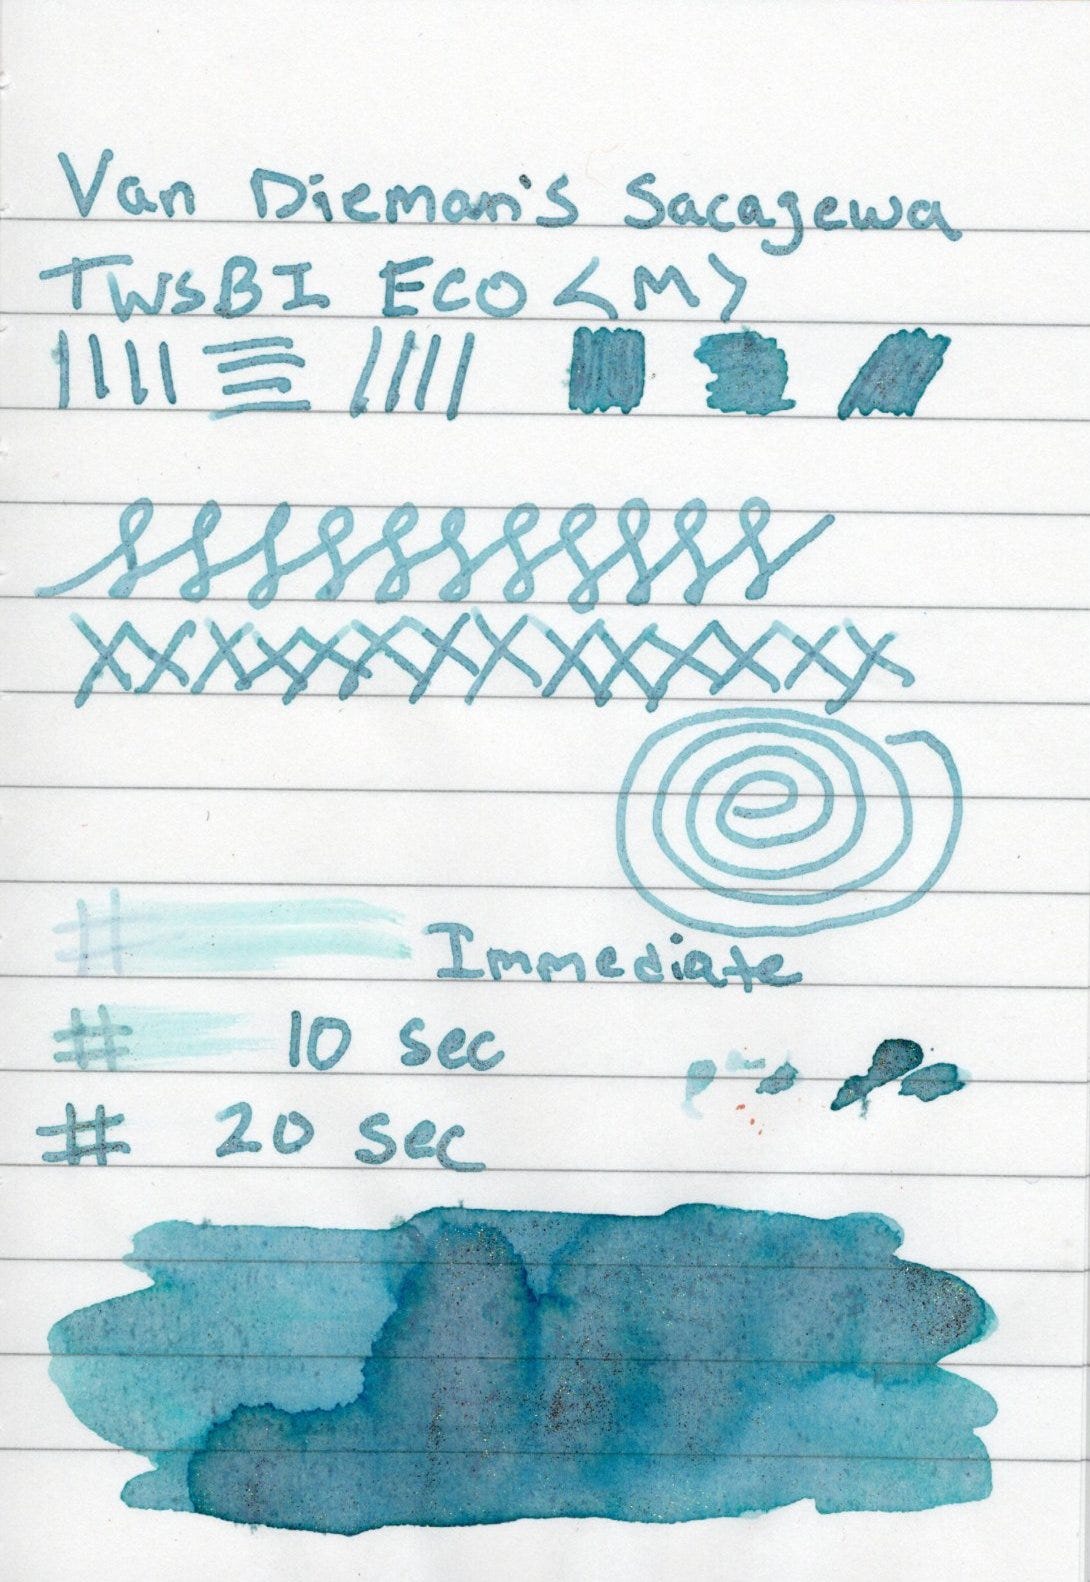 Van Dieman's Sacagewa
TWSBI ECO <M>
# Immediate
# 10 sec
# 20 sec